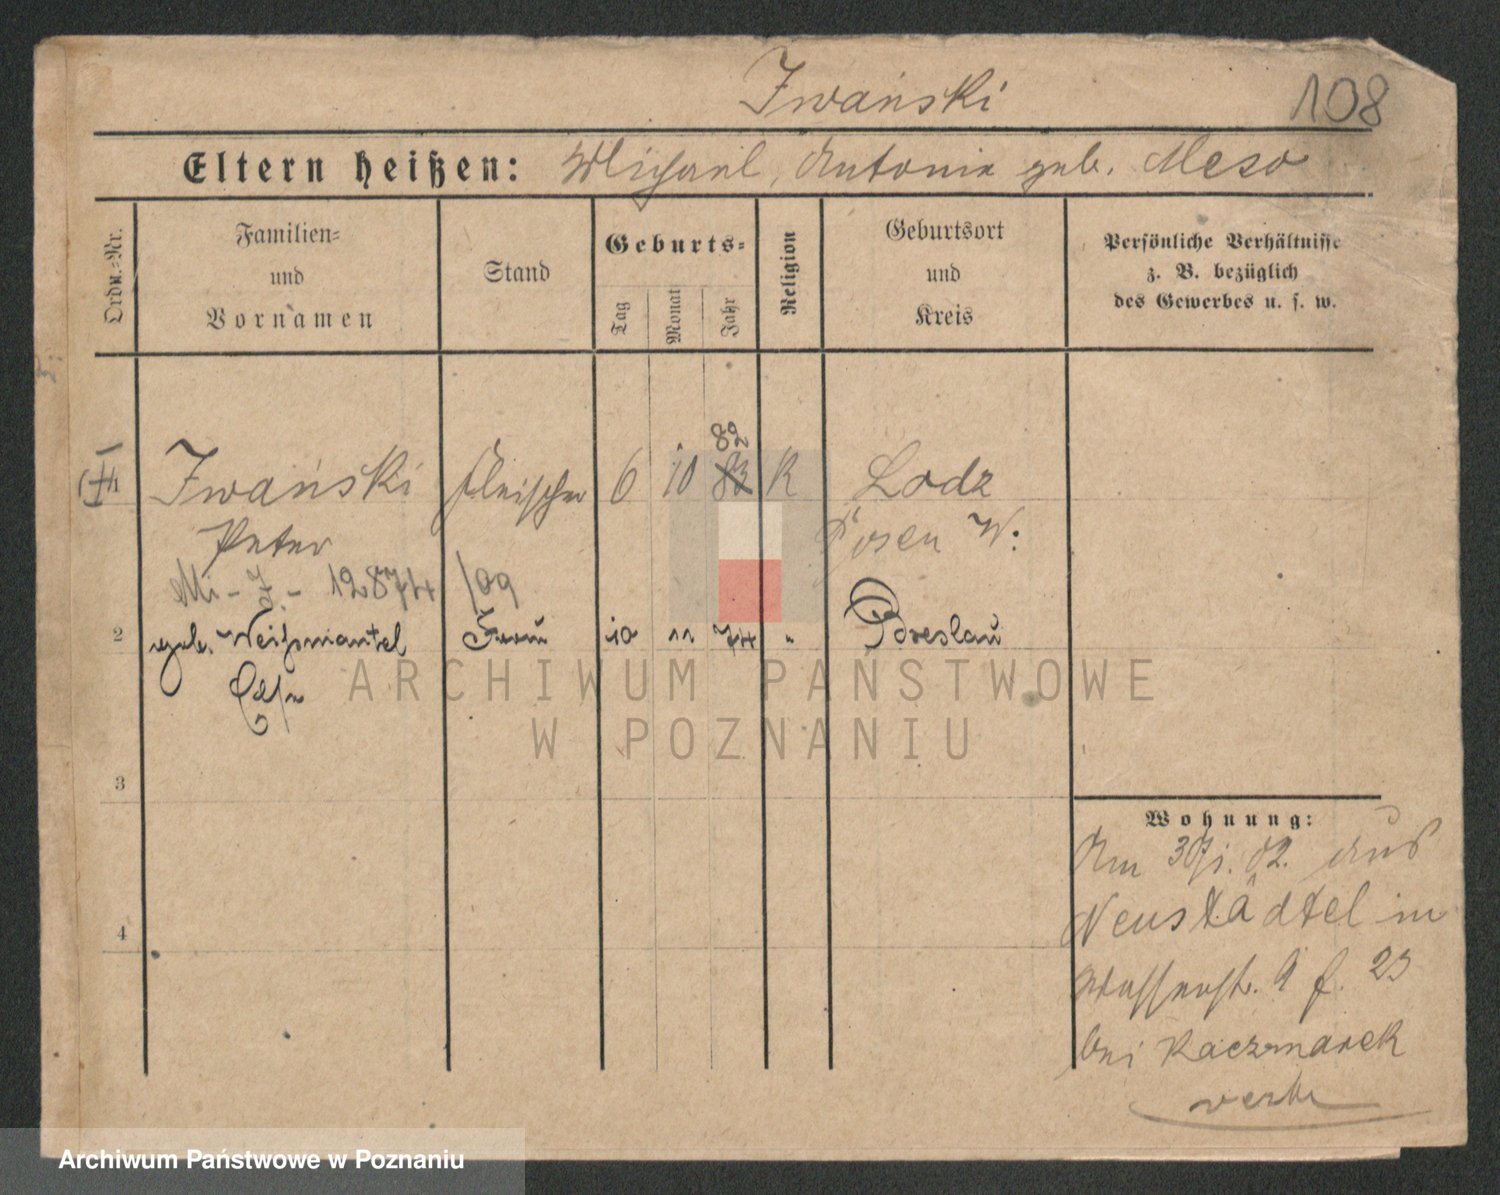 Iwański
108
Eltern heißen: Michael, Antonie geb. Meso
Ordn.-Nr.
Familien-
und
Vornamen
Stand
Geburts-
Tag
Monat
Jahr
Religion
Geburtsort
und
Kreis
Persönliche Verhältnisse
z. B. bezüglich
des Gewerbes u. s. w.
82
1 Iwański Fleischer 6 10 83 K Lodz
Peter Posen W.
Mi - J. - 12874 /09
2 geb. Weihsmantel Frau 10 11 74 " Breslau
3
4
Wohnung:
Am 30/1. 02. aus
Neustädtel in
Wasserstr. 9 f. 23
bei Kaczmarek
ARCHIWUM PAŃSTWOWE
W POZNANIU
Archiwum Państwowe w Poznaniu